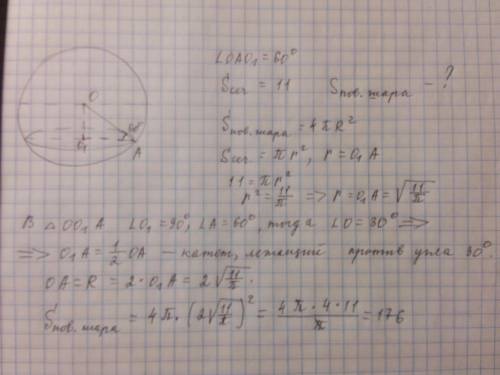 ∠OAO₁ = 60°
Sсеч = 11 Sпов. шара – ?
Sпов. шара = 4πR²
Sсеч = πr², r = O₁A
11 = πr²
r² = 11/π => r = O₁A = √(11/π)
O
60°
O₁
A
В △OO₁A ∠O₁ = 90°, ∠A = 60°, тогда ∠O = 30° =>
=> O₁A = 1/2 OA – катет, лежащий против угла 30°.
OA = R = 2·O₁A = 2√(11/π).
Sпов. шара = 4π·(2√(11/π))² = (4π·4·11)/π = 176